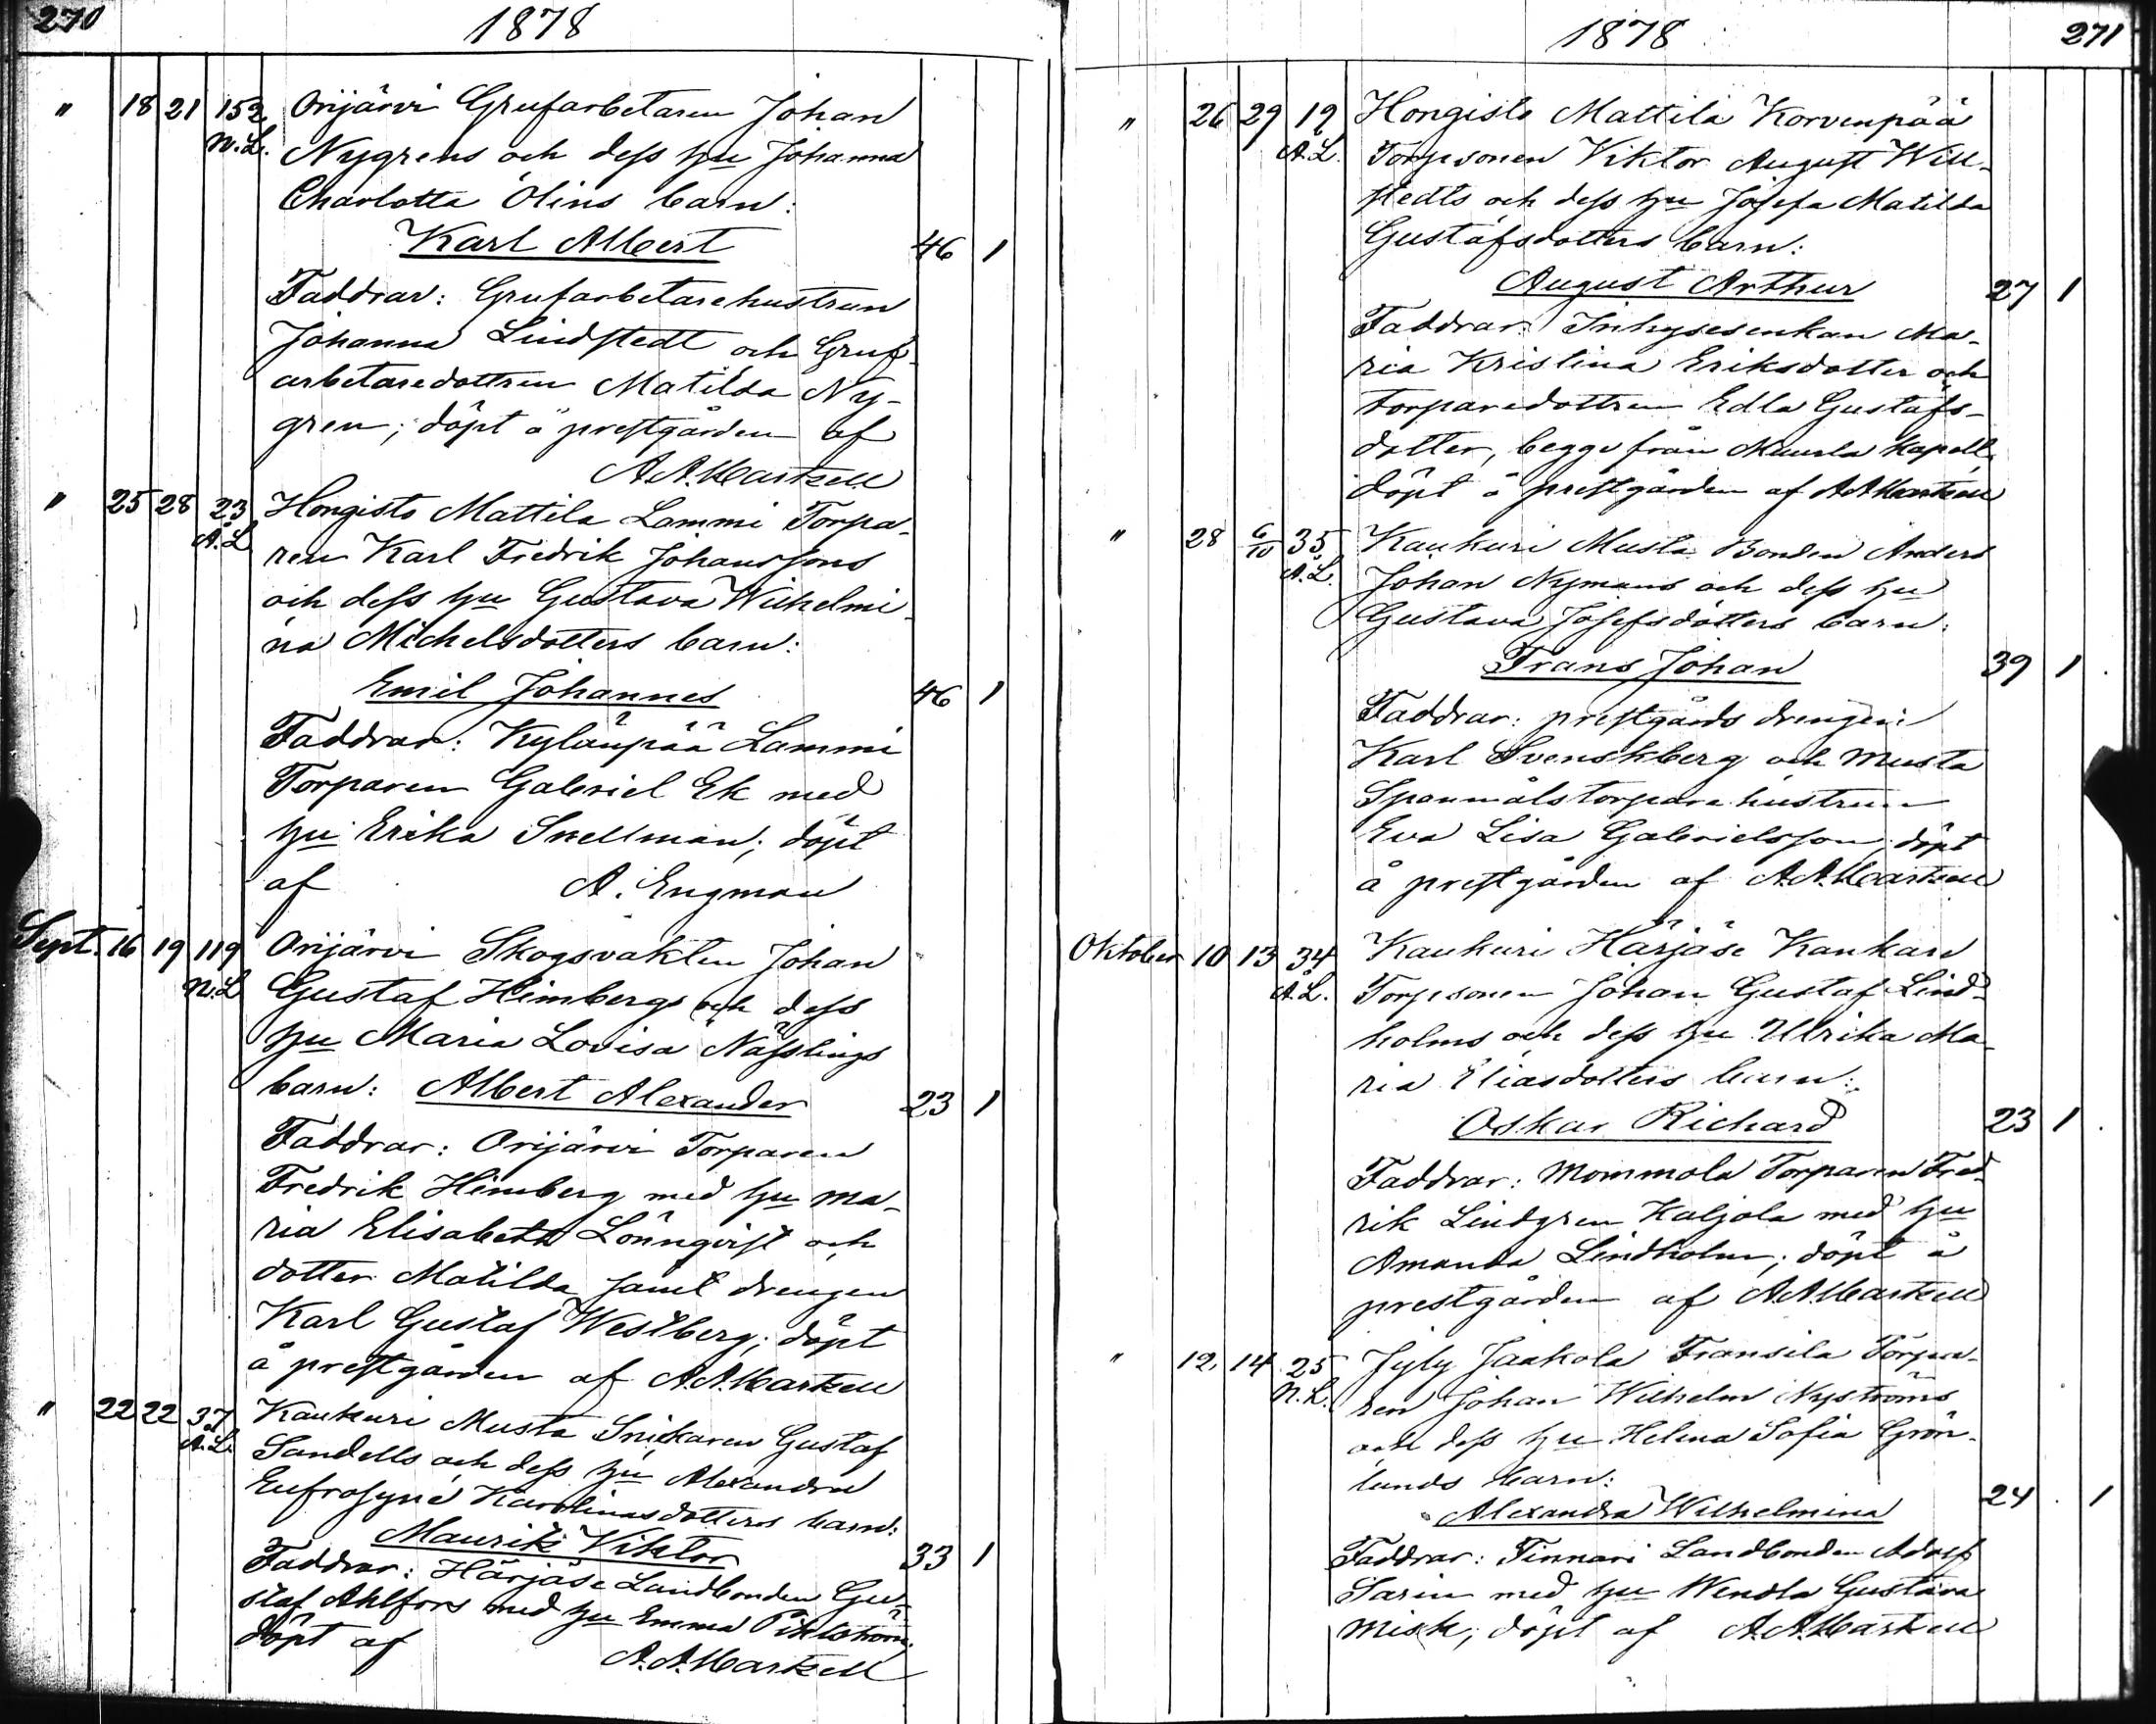 270
1878
" 18 21 152 Orijärvi Grufarbetaren Johan
N.L. Nygrens och dess hu Johanna
Charlotta Olins barn:
Karl Albert 46 1
Faddrar: Grufarbetarehustrun
Johanna Lindstedt och Gruf-
arbetaredottren Matilda Ny-
gren; döpt å prestgården af
A.A.Martzell
" 25 28 23 Hongisto Mattila Lammi Torpa-
Å.L. ren Karl Fredrik Johanssons
och dess hu Gustava Wilhelmi-
na Michelsdotters barn:
Emil Johannes 46 1
Faddrar: Kylänpää Lammi
Torparen Gabriel Ek med
hu Erika Snellman; döpt
af A. Engman
Sept. 16 19 119 Orijärvi Skogsvakten Johan
N.L. Gustaf Himbergs och dess
hu Maria Lovisa Nässlings
barn: Albert Alexander 23 1
Faddrar: Orijärvi Torparen
Fredrik Himberg med hu Ma-
ria Elisabeth Lönnqvist och
dotter Matilda samt drengen
Karl Gustaf Westberg; döpt
å prestgården af A.A.Martzell
" 22 22 37 Kaukuri Musta Snickaren Gustaf
Å.L. Sandells och dess hu Alexandra
Eufrosyne Karolinasdotters barn:
Maurits Viktor 33 1
Faddrar: Härjäse Landbonden Gu-
staf Ahlfors med hu Emma Pihlström;
döpt af A.A.Martzell
1878
271
" 26 29 19 Hongisto Mattila Korvenpää
Å.L. Torpsonen Viktor August Will-
stedts och dess hu Josefa Matilda
Gustafsdotters barn:
August Arthur 27 1
Faddrar: Inhysesenkan Ma-
ria Kristina Eriksdotter och
torparedottren Edla Gustafs-
dotter, begge från kapell,
döpt å prestgården af A.A.Martzell
" 28 6/10 35 Kaukuri Musta Bonden Anders
Å.L. Johan Nymans och dess hu
Gustava Josefsdotters barn:
Frans Johan 39 1
Faddrar: prestgårds drengen
Karl Svenskberg och Musta
Spanmålstorpare hustrun
Eva Lisa Gabrielsson; döpt
å prestgården af A.A.Martzell
Oktober 10 13 34 Kaukuri Härjäse Kankare
Å.L. Torpsonen Johan Gustaf Lind-
holms och dess hu Ulrika Ma-
ria Eliasdotters barn:
Oskar Richard 23 1
Faddrar: Mommola Torparen Fred-
rik Lindgren Kaljola med hu
Amanda Lindholm; döpt å
prestgården af A.A.Martzell
" 12 14 25 Jyly Jaakola Fransila Torpa-
N.L. ren Johan Wilhelm Nyströms
och dess hu Helena Sofia Grön-
lunds barn:
Alexandra Wilhelmina 24 1
Faddrar: Tinnari Landbonden Adolf
Sarin med hu Wendla Gustava
Misk; döpt af A.A.Martzell